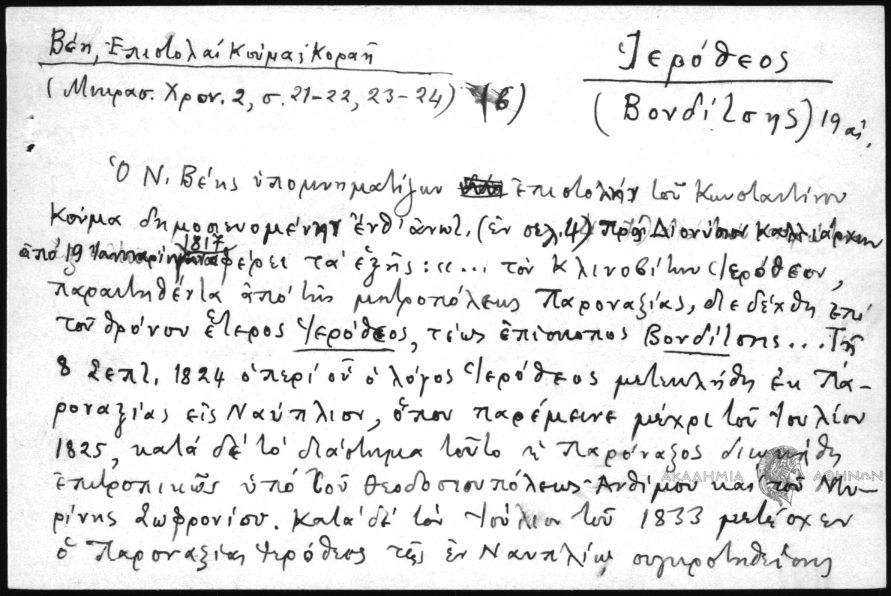 Βέη, Ἐπιστολαὶ Κούμα, Κοραῆ
(Μικρασ. Χρον. 2, σ. 21-22, 23-24) (6)
Ἱερόθεος
(Βονδίτσης) 19 αἰ.
Ὁ Ν. Βέης ὑπομνηματίζων ἐπιστολὴν τοῦ Κωνσταντίνου
Κούμα δημοσιευομένην ἔνθ' ἀνωτ. (ἐν σελ. 4) πρὸς Διονύσιον Καλλιάρχην
ἀπὸ 19 Ἰανουαρίου 1817 ἀναφέρει τὰ ἑξῆς: «... τὸν Κλινοβίτην Ἱερόθεον,
παραιτηθέντα ἀπὸ τῆς μητροπόλεως Παροναξίας, διεδέχθη ἐπὶ
τοῦ θρόνου ἕτερος Ἱερόθεος, τέως ἐπίσκοπος Βονδίτσης... Τῇ
8 Σεπτ. 1824 ὁ περὶ οὗ ὁ λόγος Ἱερόθεος μετεκλήθη ἐκ Πα-
ροναξίας εἰς Ναύπλιον, ὅπου παρέμεινε μέχρι τοῦ Ἰουλίου
1825, κατὰ δὲ τὸ διάστημα τοῦτο ἡ Παρόναξος διῳκήθη
ἐπιτροπικῶς ὑπὸ τοῦ Θεοδοσιουπόλεως Ἀνθίμου καὶ τοῦ Μυ-
ρίνης Σωφρονίου. Κατὰ δὲ τὸν Ἰούλιον τοῦ 1833 μετέσχεν
ὁ Παροναξίας Ἱερόθεος τῆς ἐν Ναυπλίῳ συγκροτηθείσης
ΑΚΑΔΗΜΙΑ ΑΘΗΝΩΝ